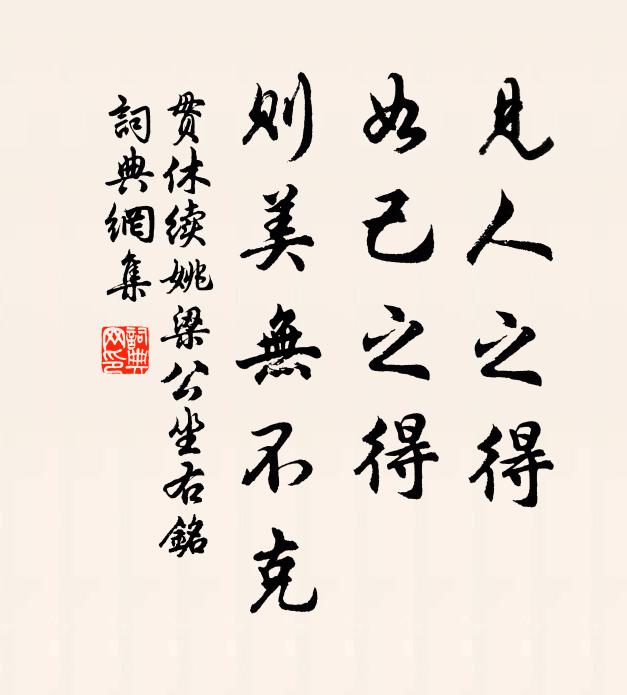 見人之得
如己之得
則美無不克
贯休续姚梁公坐右銘
詞典網集
詞典網印